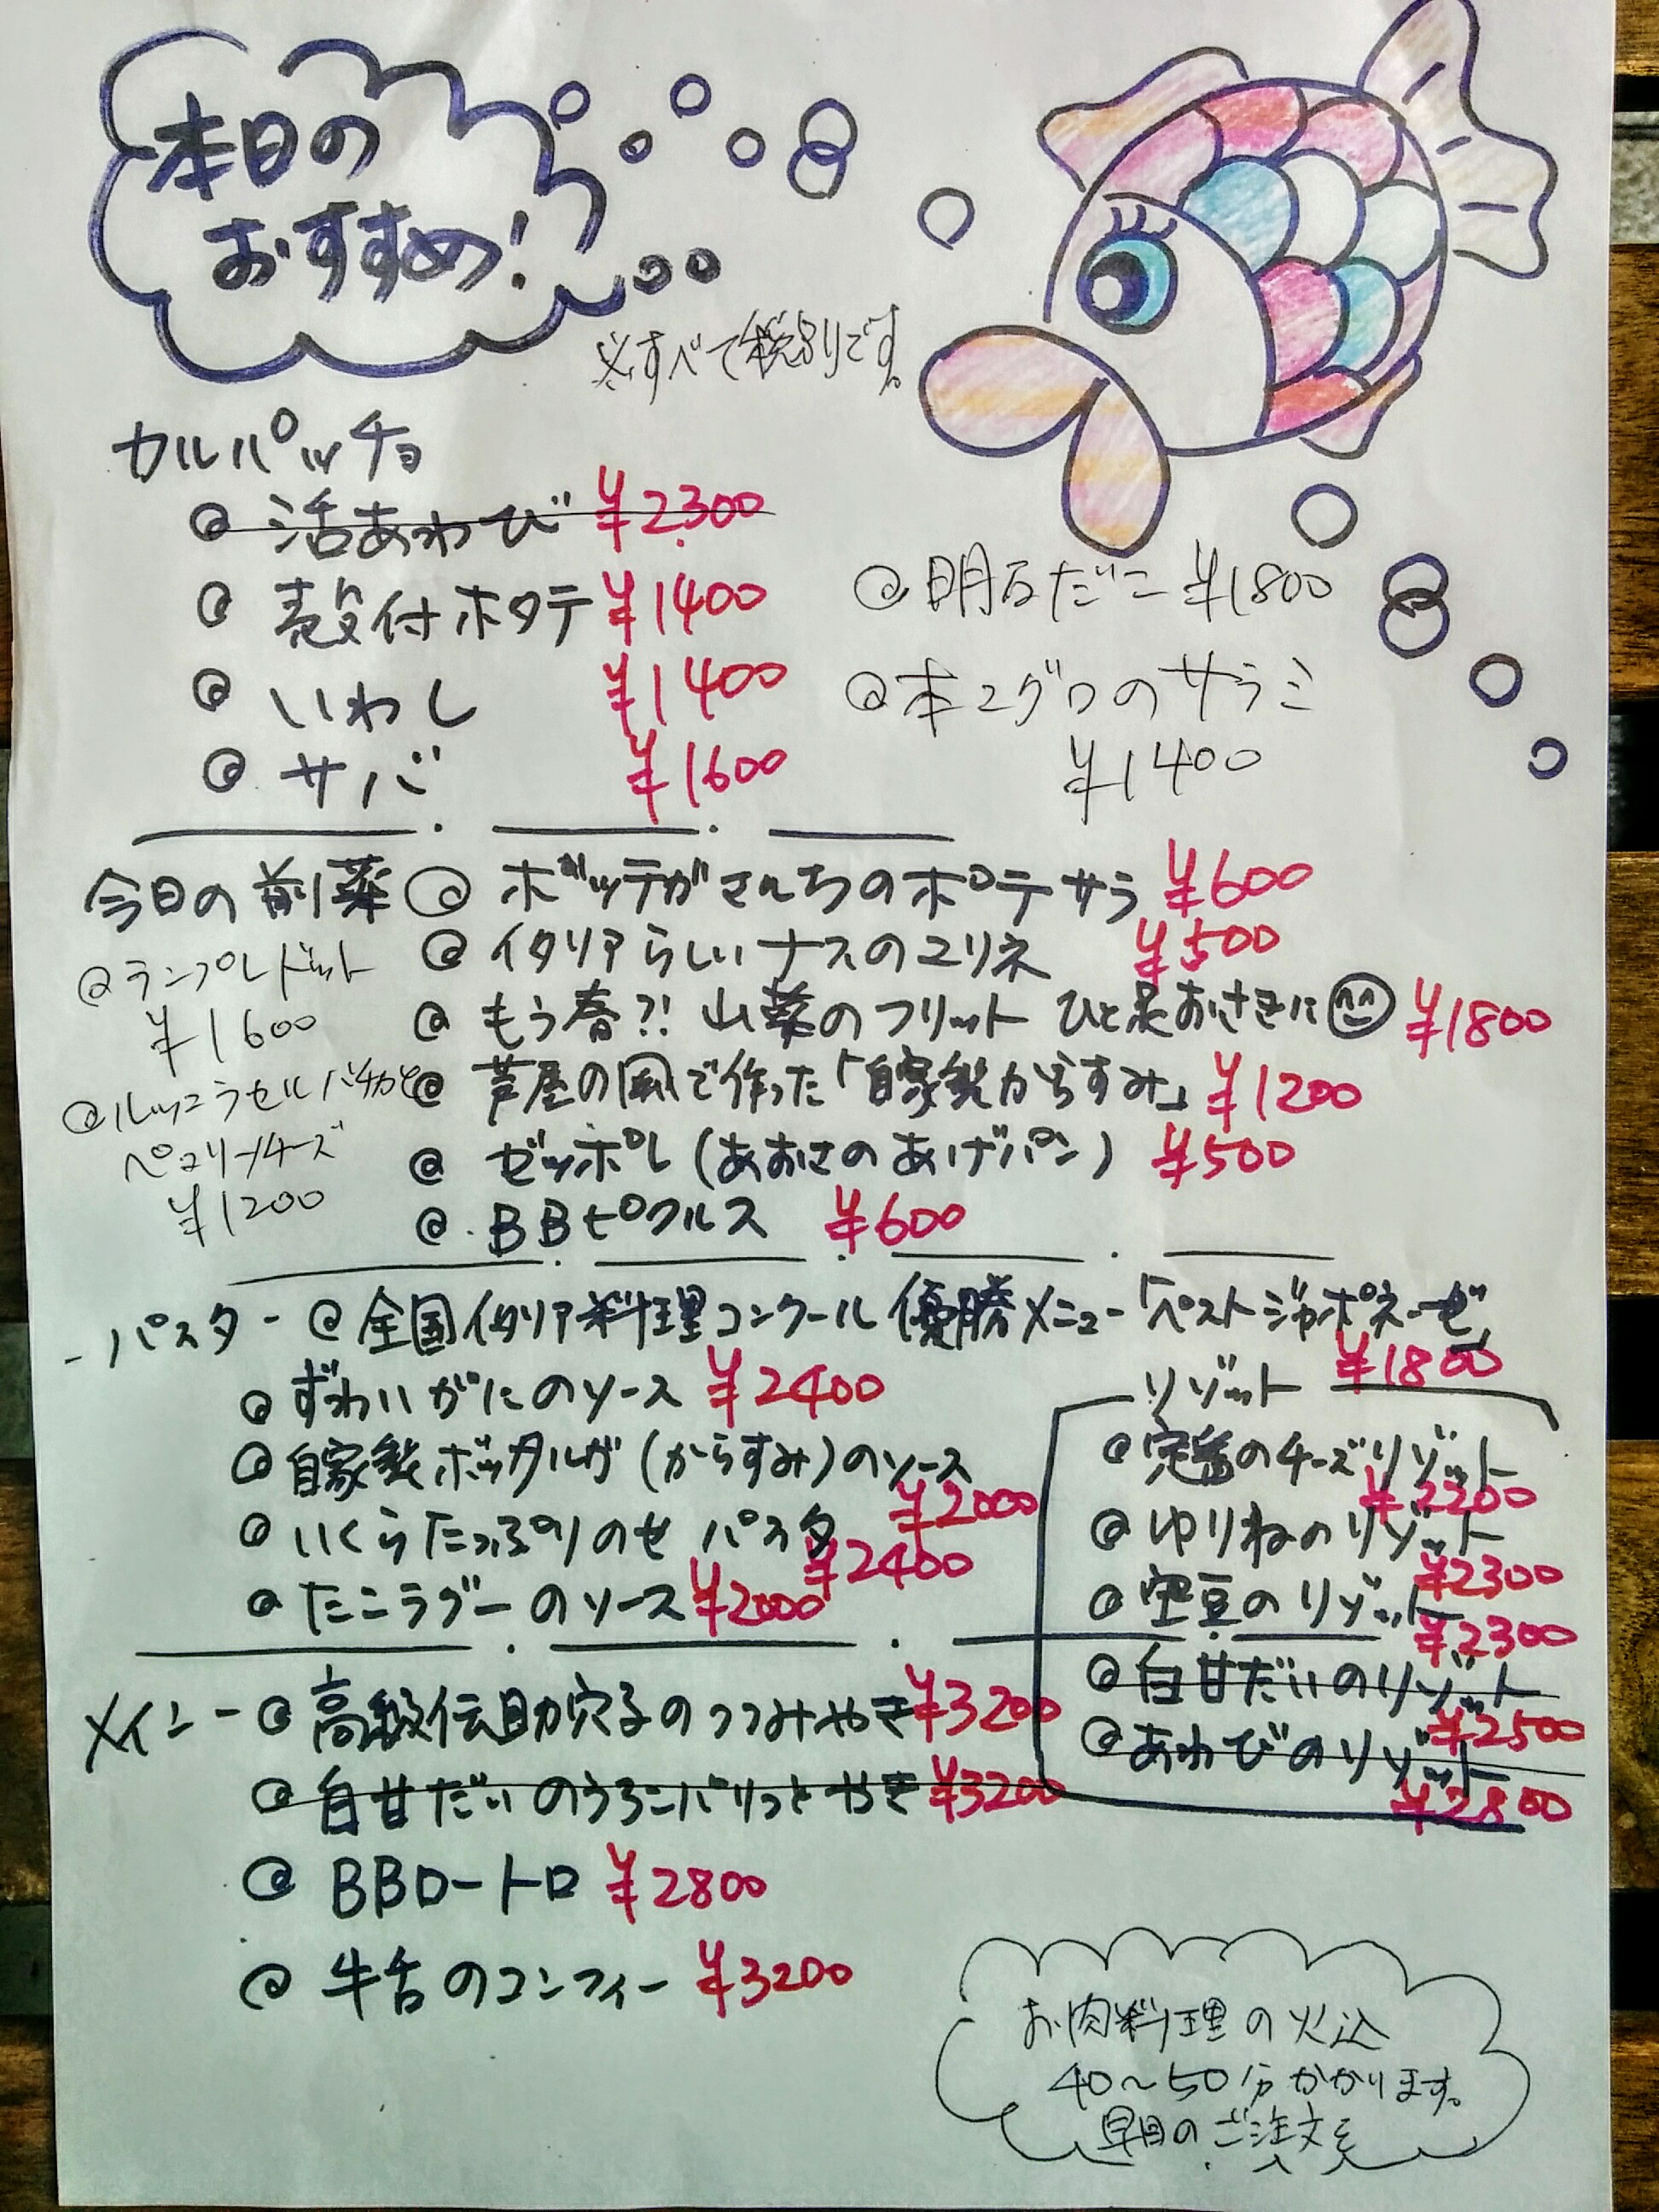 本日の
おすすめ!
※すべて税別です。
カルパッチョ
@ 活あわび ¥2300
@ 殻付ホタテ ¥1400
@ いわし ¥1400
@ サバ ¥1600
@明石だこ ¥1800
@本マグロのサラミ
¥1400
今日の前菜 @ ボッテガさんちのポテサラ ¥600
@ イタリアらしいナスのマリネ ¥500
@ もう春?! 山菜のフリット ひと足おさきに ¥1800
@ 芦屋の風で作った「自家製からすみ」 ¥1200
@ ゼッポレ(あおさのあげパン) ¥500
@ BBピクルス ¥600
@ランプレドット
¥1600
@ルッコラセルバチカと
ペコリーノチーズ
¥1200
パスタ - @ 全国イタリア料理コンクール 優勝メニュー「ペストジャポネーゼ」
¥1800
@ ずわいがにのソース ¥2400
@ 自家製ボッタルガ(からすみ)のソース
¥2000
@ いくらたっぷりのせ パスタ
¥2400
@ たこラグーのソース ¥2000
リゾット
@ 定番のチーズリゾット
¥2200
@ ゆりねのリゾット
¥2300
@ 空豆のリゾット
¥2300
@ 白甘だいのリゾット
¥2500
@ あわびのリゾット
¥2800
メイン - @ 高級伝助穴子のつつみやき ¥3200
@ 白甘だいのうろこパリっとやき ¥3200
@ BBロートロ ¥2800
@ 牛舌のコンフィー ¥3200
お肉料理の火込
40～50分かかります。
早目のご注文を